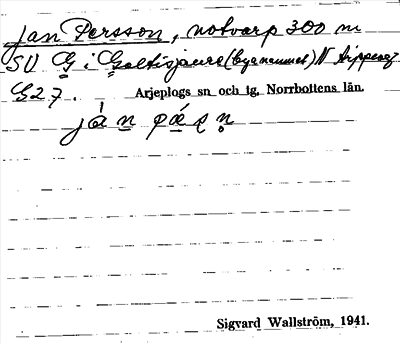 Jan Persson, notvarp 300 m
SV G i Galtisjaure (byanamnet) N Arjeplog
G27. Arjeplogs sn och tg, Norrbottens län.
Sigvard Wallström, 1941.